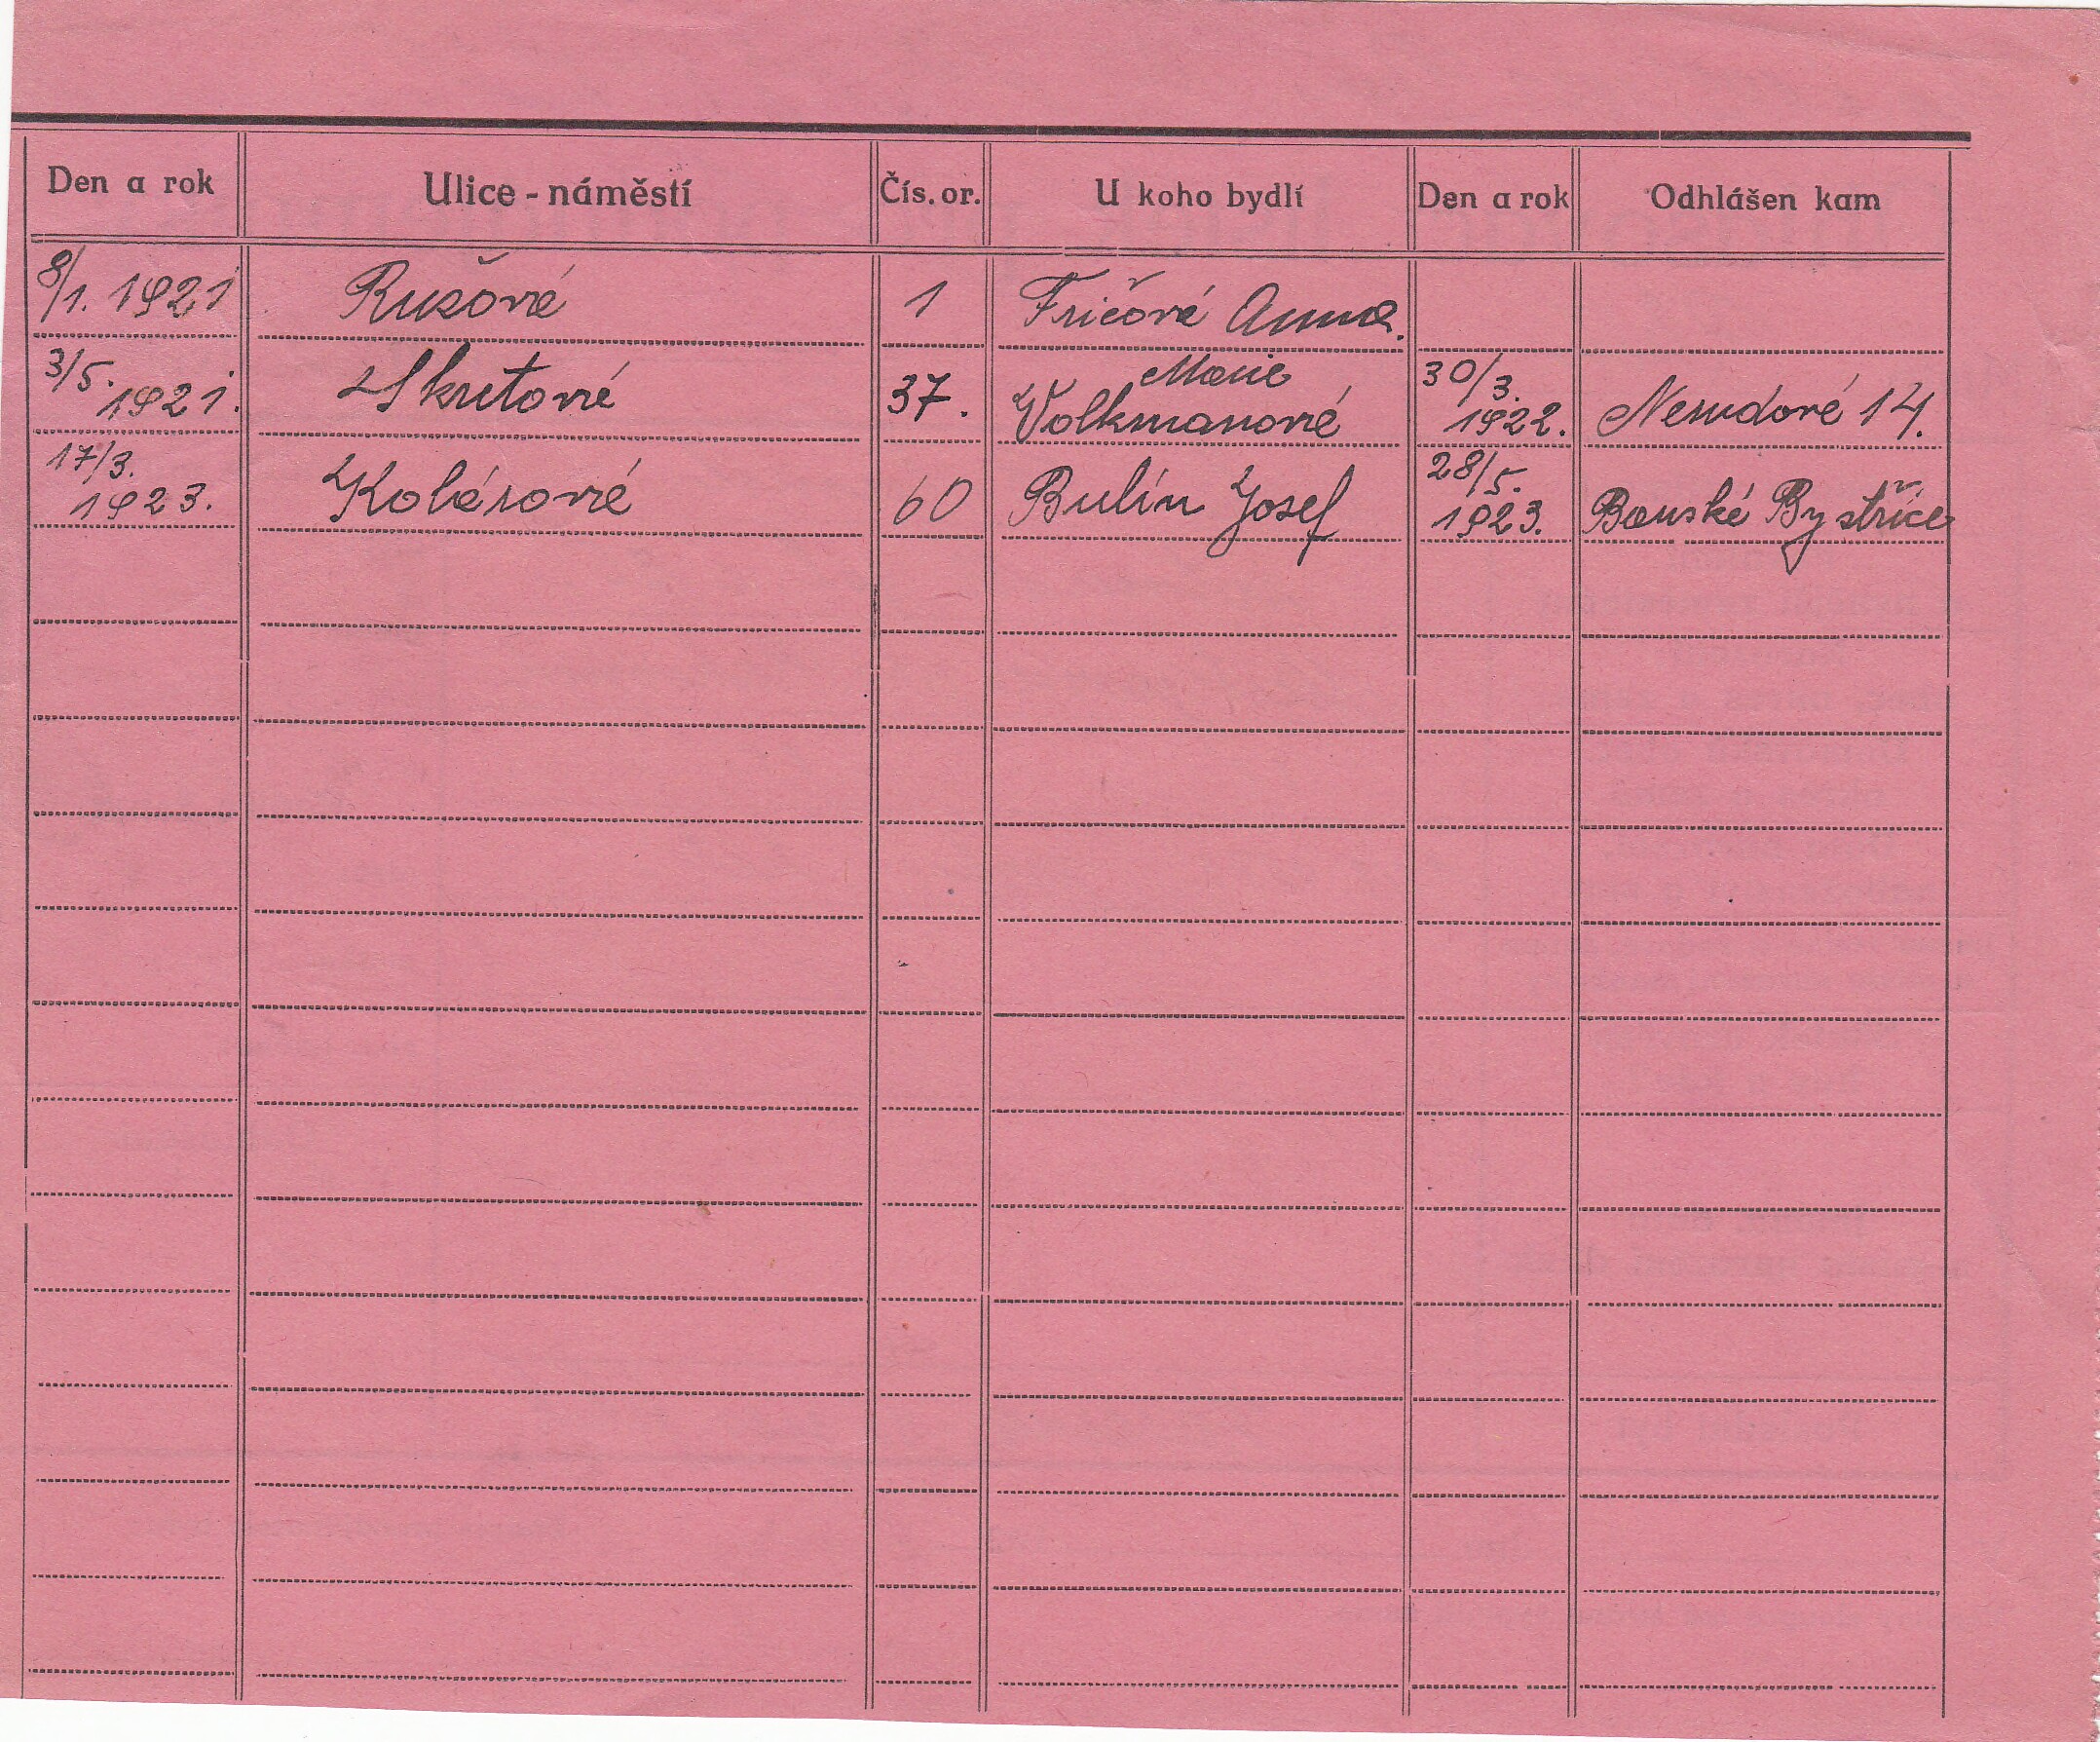 Den a rok Ulice - náměstí Čís. or. U koho bydlí Den a rok Odhlášen kam
8/1. 1921 Rušová 1 Fričová Anna.
3/5. 1921. Skretová 37. Marie Volkmanová 30/3. 1922. Nerudová 14.
17/3. 1923. Kolárová 60 Bulín Josef 28/5. 1923. Banská Bystřice